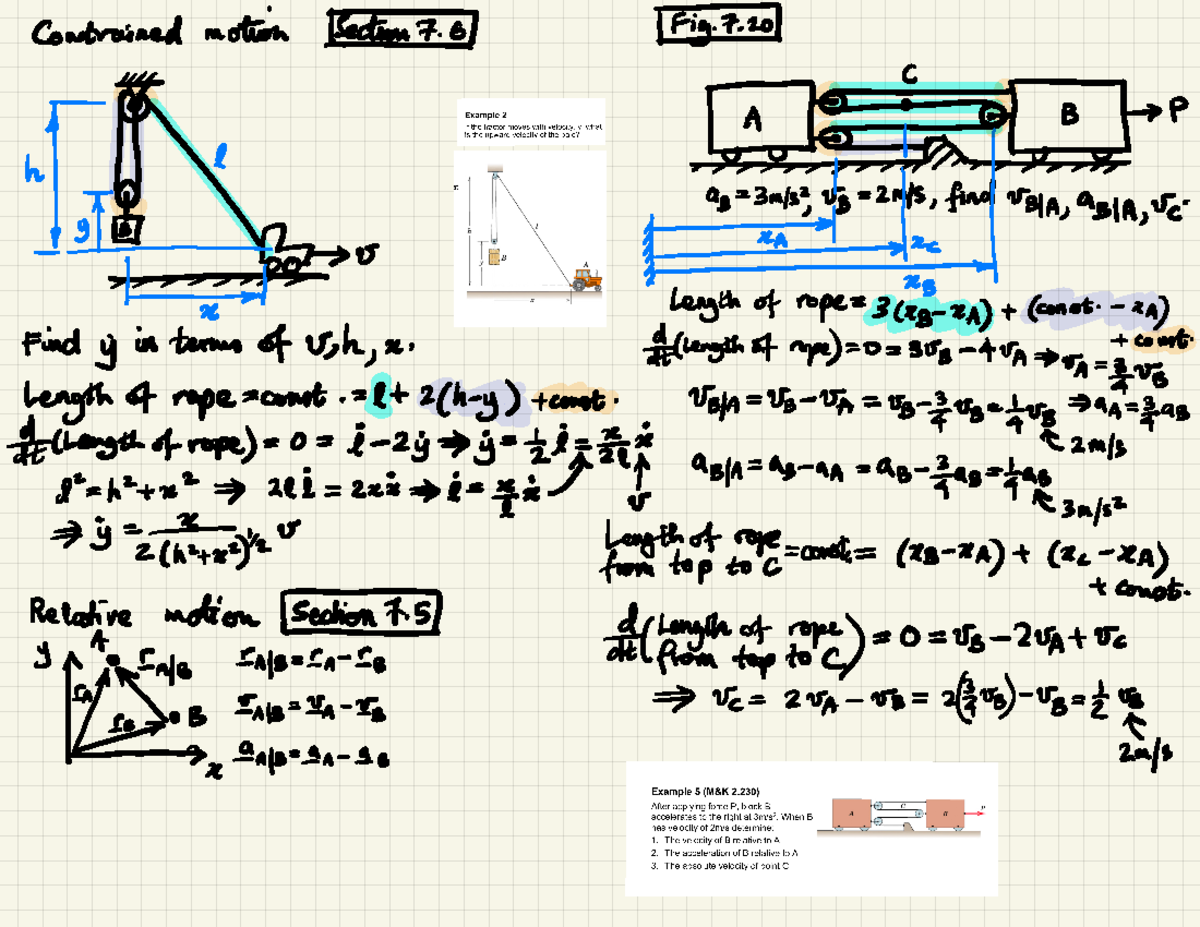 Constrained motion Section 7.6
h
l
y
B
v
x
Example 2
If the tractor moves with velocity, v what
is the upward velocity of the bale?
h
l
y
B
A
x
Find ẏ in terms of v, h, x.
Length of rope = const. = l + 2(h-y) + const.
d/dt (Length of rope) = 0 = l̇ - 2ẏ ⇒ ẏ = 1/2 l̇ = x/2l ẋ
l² = h² + x² ⇒ 2l l̇ = 2xẋ ⇒ l̇ = x/l ẋ
v
⇒ ẏ = x / 2(h²+x²)^1/2 v
Relative motion Section 7.5
y
A
r_A/B
r_A
r_B
B
x
r_A/B = r_A - r_B
v_A/B = v_A - v_B
a_A/B = a_A - a_B
Fig. 7.20
A
C
B
P
a_B = 3m/s², v_B = 2m/s, find v_B/A, a_B/A, v_C.
x_A
x_C
x_B
Length of rope = 3(x_B - x_A) + (const. - x_A)
+ const.
d/dt (Length of rope) = 0 = 3v_B - 4v_A ⇒ v_A = 3/4 v_B
v_B/A = v_B - v_A = v_B - 3/4 v_B = 1/4 v_B ⇒ a_A = 3/4 a_B
2m/s
a_B/A = a_B - a_A = a_B - 3/4 a_B = 1/4 a_B
3m/s²
Length of rope
from top to C = const. = (x_B - x_A) + (x_C - x_A)
+ const.
d/dt (Length of rope
from top to C) = 0 = v_B - 2v_A + v_C
⇒ v_C = 2v_A - v_B = 2(3/4 v_B) - v_B = 1/2 v_B
2m/s
Example 5 (M&K 2.230)
After applying force P, block B
accelerates to the right at 3m/s². When B
has velocity of 2m/s determine:
1. The velocity of B relative to A
2. The acceleration of B relative to A
3. The absolute velocity of point C
A
C
B
P